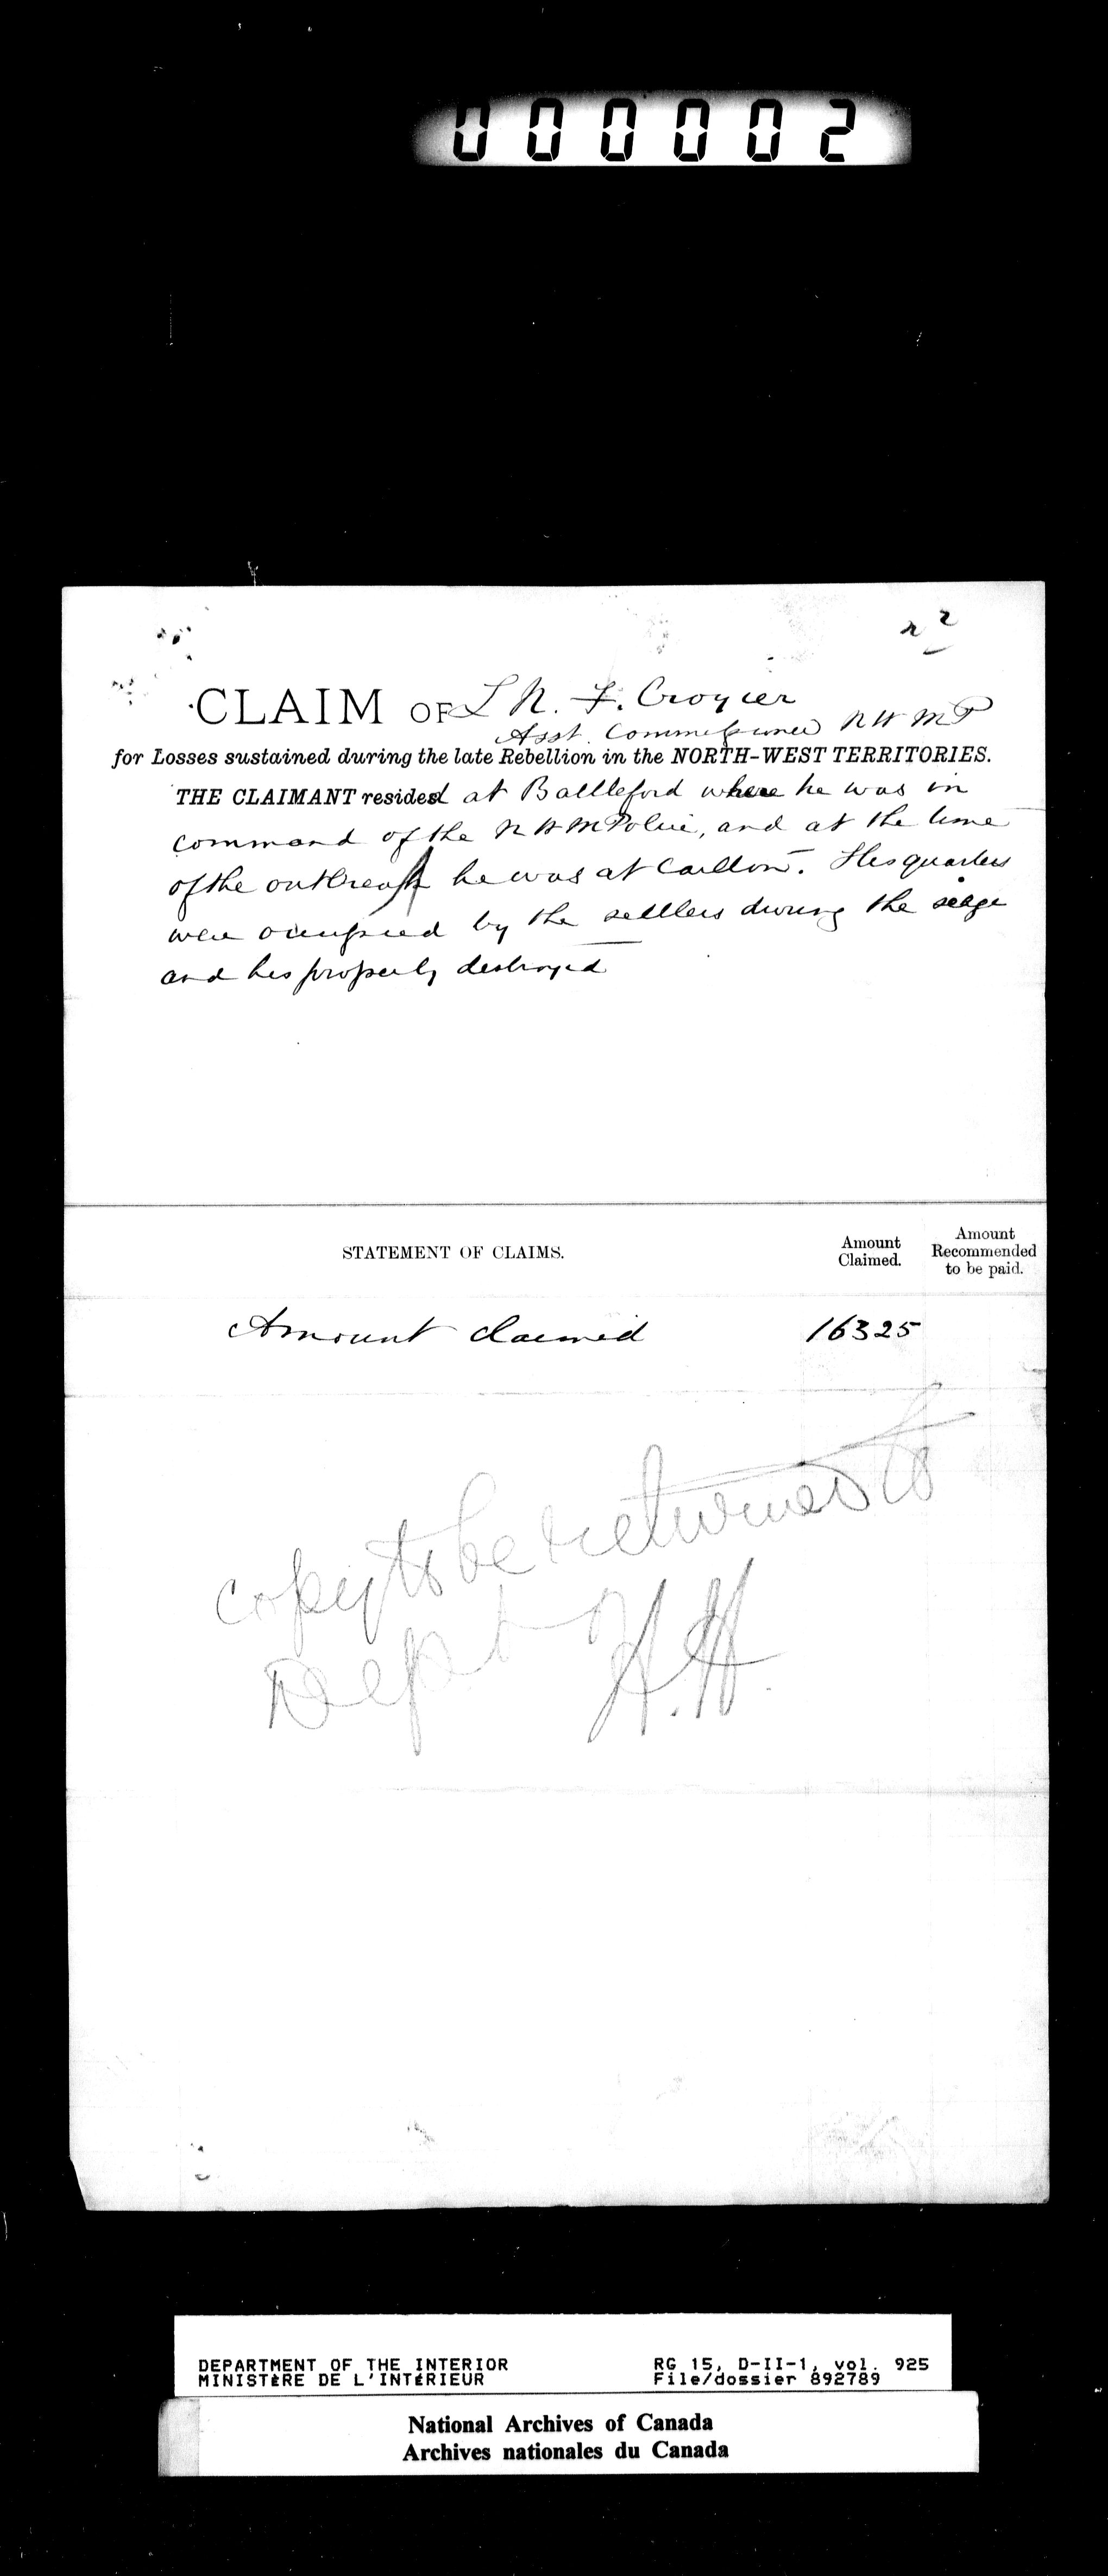 000002
2 2
CLAIM OF L N. F. Crozier
Asst. Commissioner N W M P
for Losses sustained during the late Rebellion in the NORTH-WEST TERRITORIES.
THE CLAIMANT resided at Battleford where he was in
command of the N W M Police, and at the time
of the outbreak he was at Carlton. His quarters
were occupied by the settlers during the seige
and his property destroyed
STATEMENT OF CLAIMS.
Amount Claimed.
Amount Recommended to be paid.
Amount claimed 16325
copy to be returned to
Dept
H.H.
DEPARTMENT OF THE INTERIOR RG 15, D-II-1, vol. 925
MINISTÈRE DE L'INTÉRIEUR File/dossier 892789
National Archives of Canada
Archives nationales du Canada